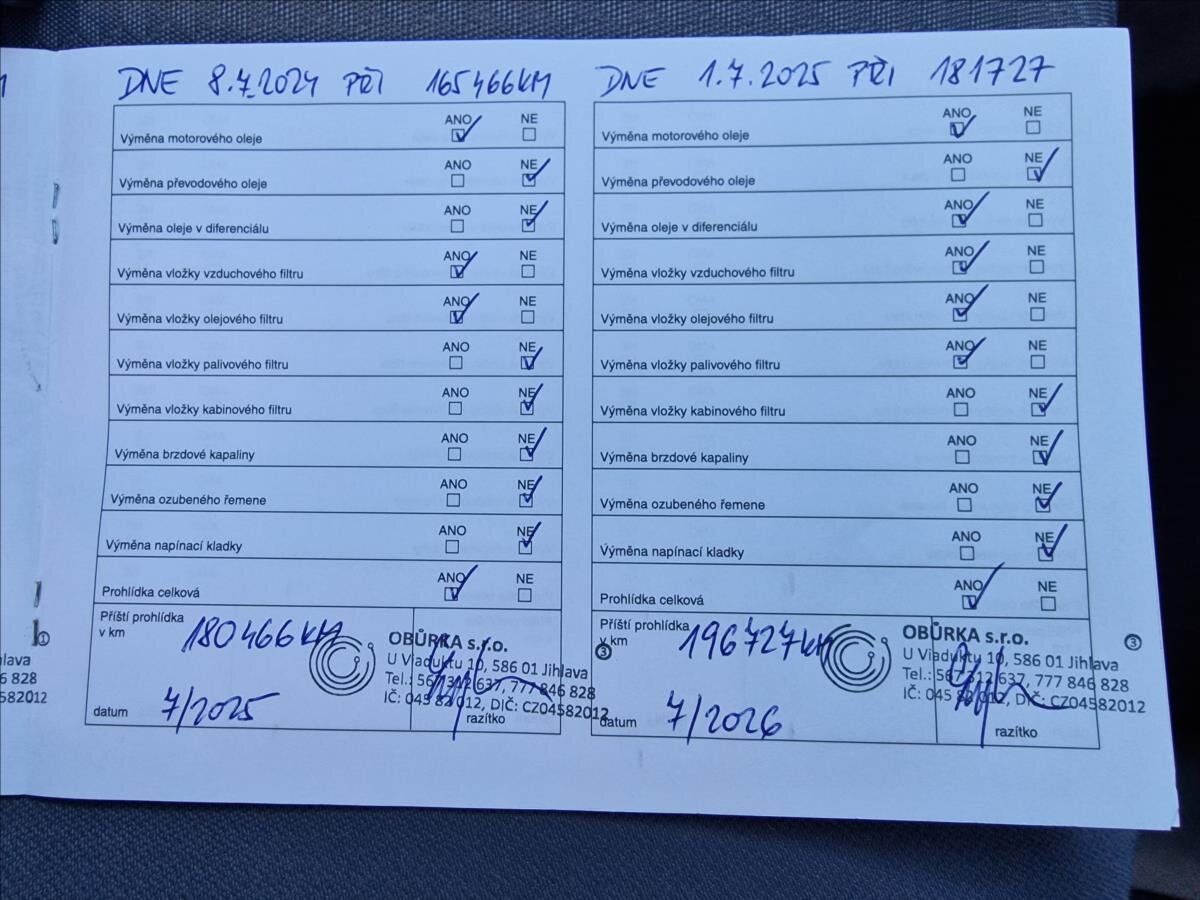 DNE 8.7.2024 PŘI 165466KM
ANO NE
Výměna motorového oleje
ANO NE
Výměna převodového oleje
ANO NE
Výměna oleje v diferenciálu
ANO NE
Výměna vložky vzduchového filtru
ANO NE
Výměna vložky olejového filtru
ANO NE
Výměna vložky palivového filtru
ANO NE
Výměna vložky kabinového filtru
ANO NE
Výměna brzdové kapaliny
ANO NE
Výměna ozubeného řemene
ANO NE
Výměna napínací kladky
ANO NE
Prohlídka celková
Příští prohlídka
v km
180466KM
datum
7/2025
OBŮRKA s.r.o.
U Viaduktu 10, 586 01 Jihlava
Tel.: 567 312 637, 777 846 828
IČ: 045 82 012, DIČ: CZ04582012
razítko
DNE 1.7.2025 PŘI 181727
ANO NE
Výměna motorového oleje
ANO NE
Výměna převodového oleje
ANO NE
Výměna oleje v diferenciálu
ANO NE
Výměna vložky vzduchového filtru
ANO NE
Výměna vložky olejového filtru
ANO NE
Výměna vložky palivového filtru
ANO NE
Výměna vložky kabinového filtru
ANO NE
Výměna brzdové kapaliny
ANO NE
Výměna ozubeného řemene
ANO NE
Výměna napínací kladky
ANO NE
Prohlídka celková
Příští prohlídka
v km
196727km
datum
7/2026
OBŮRKA s.r.o.
U Viaduktu 10, 586 01 Jihlava
Tel.: 567 312 637, 777 846 828
IČ: 045 82 012, DIČ: CZ04582012
razítko
3
3
1
lava
6 828
582012